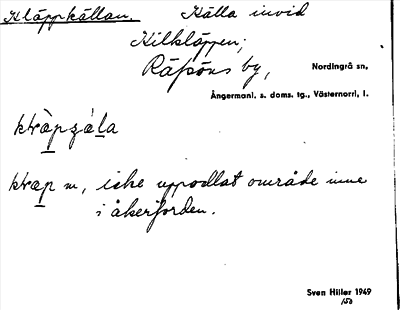 Kläppkällan. Källa invid
Kilkläppen;
Räfsöns by, Nordingrå sn,
Ångermanl. s. doms. tg., Västernorrl. l.
m, icke uppodlat område inne
i åkerjorden.
Sven Hiller 1949